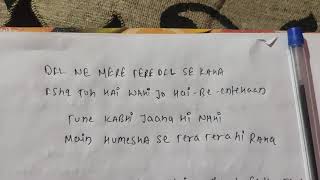 DIL NE MERE TERE DIL SE KAHA
ISHQ TOH HAI WAHI JO HAI-BE-ENTEHAAN
TUNE KABHI JAANA HI NAHI
MAIN HUMESHA SE TERA TERA HI RAHA